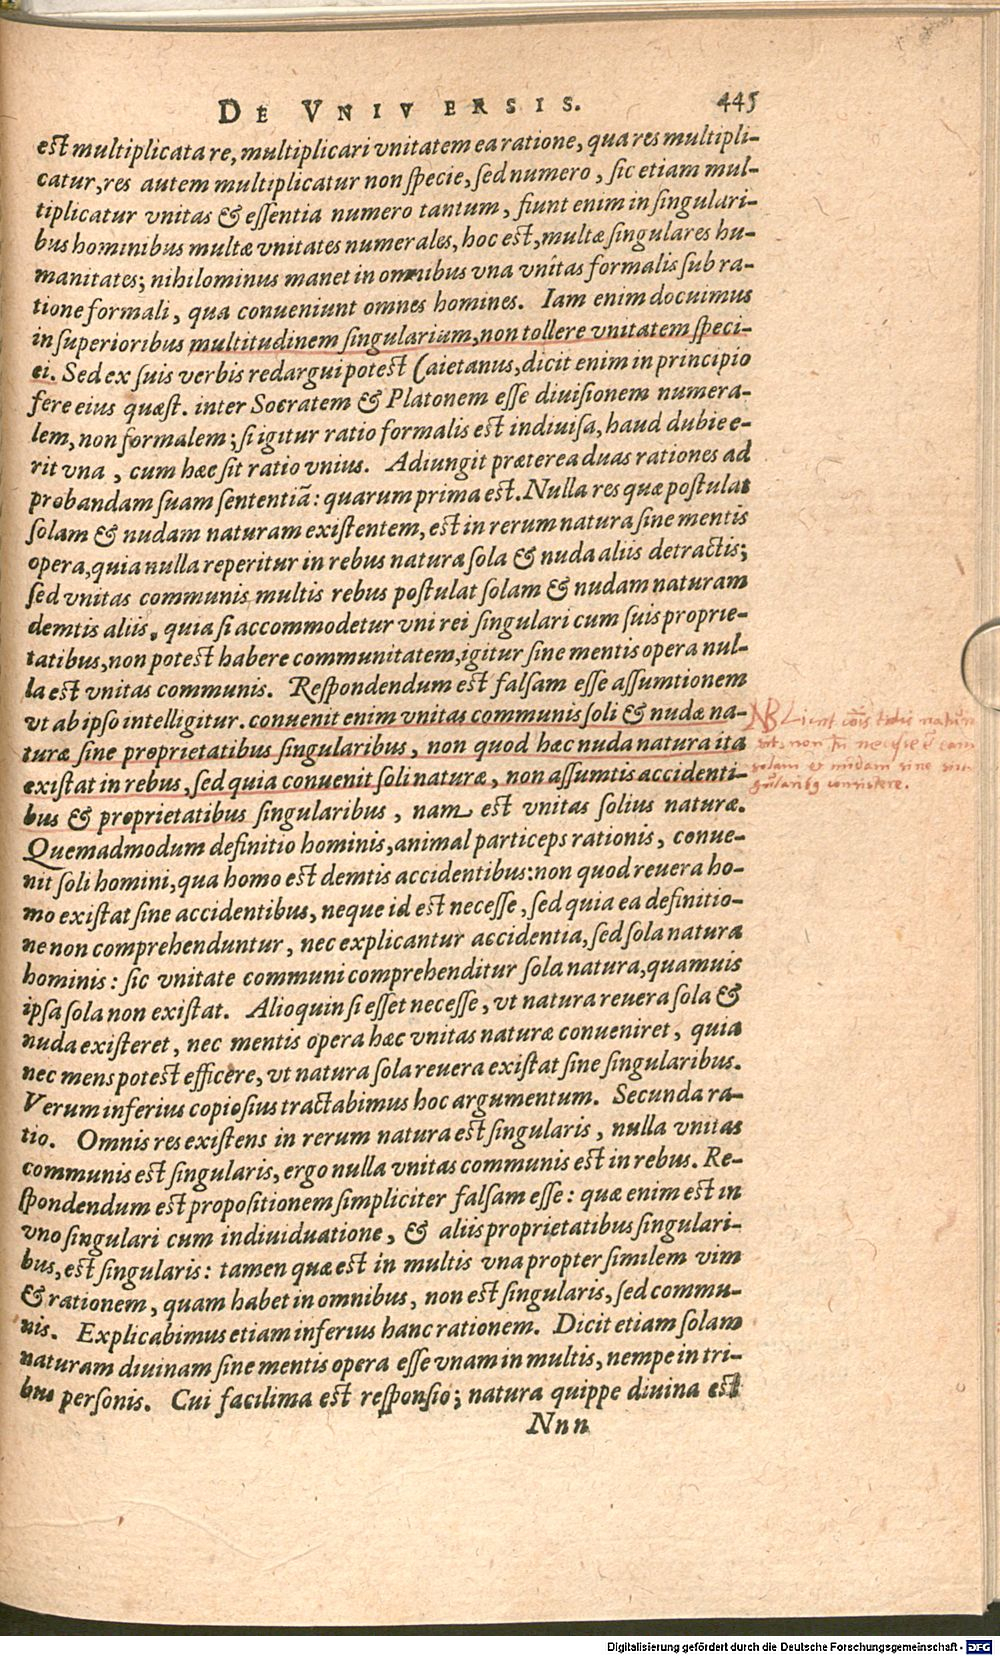 DE VNIVERSIS. 445
est multiplicata re, multiplicari vnitatem ea ratione, qua res multipli-
catur, res autem multiplicatur non specie, sed numero, sic etiam mul-
tiplicatur vnitas & essentia numero tantum, fiunt enim in singulari-
bus hominibus multæ vnitates numerales, hoc est, multæ singulares hu-
manitates; nihilominus manet in omnibus vna vnitas formalis sub ra-
tione formali, qua conueniunt omnes homines. Iam enim docuimus
in superioribus multitudinem singularium, non tollere vnitatem speci-
ei. Sed ex suis verbis redargui potest Caietanus, dicit enim in principio
fere eius quæst. inter Socratem & Platonem esse diuisionem numera-
lem, non formalem; si igitur ratio formalis est indiuisa, haud dubie e-
rit vna, cum hæc sit ratio vnius. Adiungit præterea duas rationes ad
probandam suam sententiã: quarum prima est. Nulla res quæ postulat
solam & nudam naturam existentem, est in rerum natura sine mentis
opera, quia nulla reperitur in rebus natura sola & nuda aliis detractis;
sed vnitas communis multis rebus postulat solam & nudam naturam
demtis aliis, quia si accommodetur vni rei singulari cum suis proprie-
tatibus, non potest habere communitatem, igitur sine mentis opera nul-
la est vnitas communis. Respondendum est falsam esse assumtionem
vt ab ipso intelligitur. conuenit enim vnitas communis soli & nudæ na-
turæ sine proprietatibus singularibus, non quod hæc nuda natura ita
existat in rebus, sed quia conuenit soli naturæ, non assumtis accidenti-
bus & proprietatibus singularibus, nam est vnitas solius naturæ.
Quemadmodum definitio hominis, animal particeps rationis, conue-
nit soli homini, qua homo est demtis accidentibus: non quod reuera ho-
mo existat sine accidentibus, neque id est necesse, sed quia ea definitio-
ne non comprehenduntur, nec explicantur accidentia, sed sola natura
hominis: sic vnitate communi comprehenditur sola natura, quamuis
ipsa sola non existat. Alioquin si esset necesse, vt natura reuera sola &
nuda existeret, nec mentis opera hæc vnitas naturæ conueniret, quia
nec mens potest efficere, vt natura sola reuera existat sine singularibus.
Verum inferius copiosius tractabimus hoc argumentum. Secunda ra-
tio. Omnis res existens in rerum natura est singularis, nulla vnitas
communis est singularis, ergo nulla vnitas communis est in rebus. Re-
spondendum est propositionem simpliciter falsam esse: quæ enim est in
vno singulari cum indiuiduatione, & aliis proprietatibus singulari-
bus, est singularis: tamen quæ est in multis vna propter similem vim
& rationem, quam habet in omnibus, non est singularis, sed commu-
nis. Explicabimus etiam inferius hanc rationem. Dicit etiam solam
naturam diuinam sine mentis opera esse vnam in multis, nempe in tri-
bus personis. Cui facilima est responsio; natura quippe diuina est
Nnn
NB Licet
non necesse
solam & nudam sine
consistere.
Digitalisierung gefördert durch die Deutsche Forschungsgemeinschaft - DFG